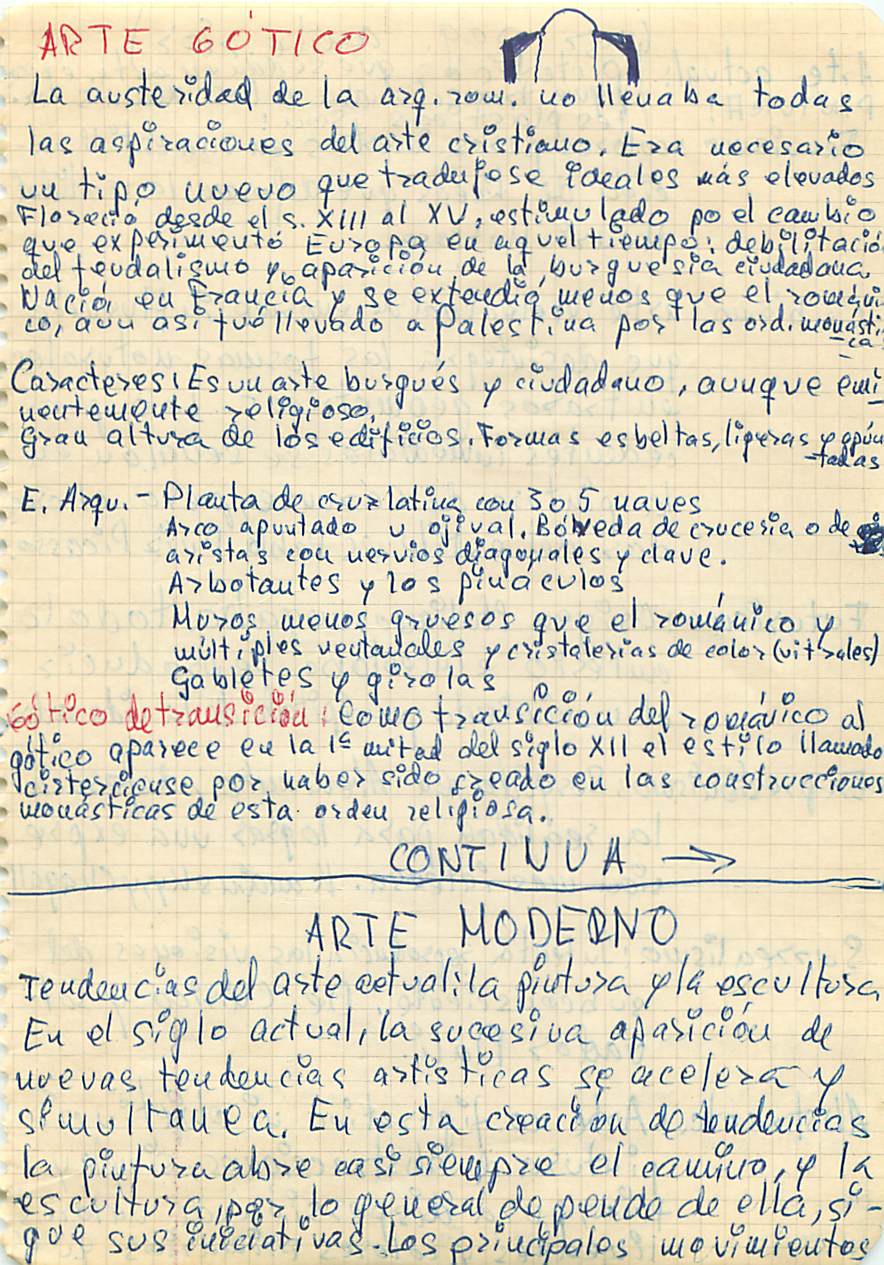 ARTE GÓTICO
La austeridad de la arq. rom. no llenaba todas
las aspiraciones del arte cristiano. Era necesario
un tipo nuevo que tradujese ideales más elevados
Floreció desde el s. XIII al XV, estimulado po el cambio
que experimentó Europa en aquel tiempo: debilitació
del feudalismo y aparición de la burguesía ciudadana
Nació en Francia y se extendió menos que el románi
co, aun así fué llevado a Palestina por las ord. monásti
-cas
Caracteres: Es un arte burgués y ciudadano, aunque emi
nentemente religioso.
Gran altura de los edificios. Formas esbeltas, ligeras y apun
-tadas
E. Arqu. - Planta de cruz latina con 3 o 5 naves
Arco apuntado u ojival. Bóveda de crucería o de
aristas con nervios diagonales y clave.
Arbotantes y los pináculos
Muros menos gruesos que el románico y
múltiples ventanales y cristalerías de color (vitrales)
Gabletes y girolas
Gótico de transición: Como transición del románico al
gótico aparece en la 1ª mitad del siglo XII el estilo llamado
cisterciense por haber sido creado en las construcciones
monásticas de esta orden religiosa.
CONTINUA →
ARTE MODERNO
Tendencias del arte actual: la pintura y la escultura
En el siglo actual, la sucesiva aparición de
nuevas tendencias artísticas se acelera y
simultanea. En esta creación de tendencias
la pintura abre casi siempre el camino, y la
escultura, por lo general depende de ella, si-
gue sus iniciativas. Los principales movimientos